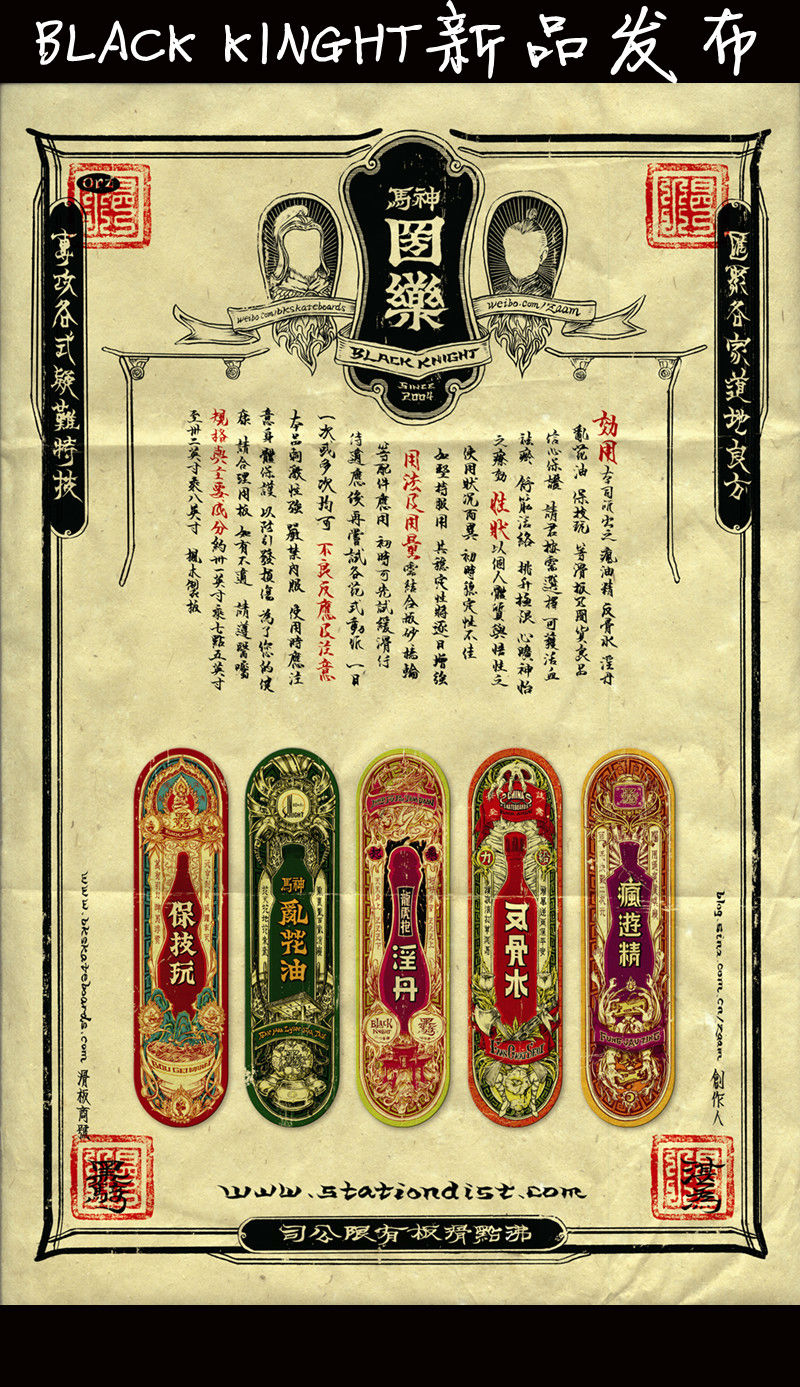 BLACK KINGHT新品发布
orz
馬神
國藥
weibo.com/bkskateboards
weibo.com/zaam
BLACK KNIGHT
SINCE
2004
匯聚各家道地良方
專攻各式疑難特技
効用 本司頂尖之 瘋油精 反骨水 淫丹
亂花油 保技玩 等滑板国貨良品
信心保證 請君按需選擇 可獲活血
祛瘀 舒筋活絡 提升極限 心曠神怡
之療効 性狀 以個人體質與悟性之
使用狀況而異 初時穩定性不佳
如堅持服用 其穩定性將逐日增強
用法及用量 需結合板砂橋輪
等配件應用 初時可先試緩滑行
待適應後再嘗試各花式動作 一日
一次或多次均可 不良反應及注意
本品刺激性強 嚴禁內服 使用時應注
意身體保護 以防引發損傷 為了您的健
康 請合理用板 如有不適 請遵醫囑
規格與主要成分 約卅一英寸乘七點五英寸
至卅二英寸乘八英寸 楓木製板
保技玩
馬神
亂花油
KNIGHT
龍虎抱
淫丹
BLACK
KNIGHT
CHINA
SKATEBOARDS
反骨水
瘋遊精
FUNG YAU TING
www.bkskateboards.com 滑板商號
blog.sina.com.cn/zaam 創作人
www.stationdist.com
司公限有板滑點沸